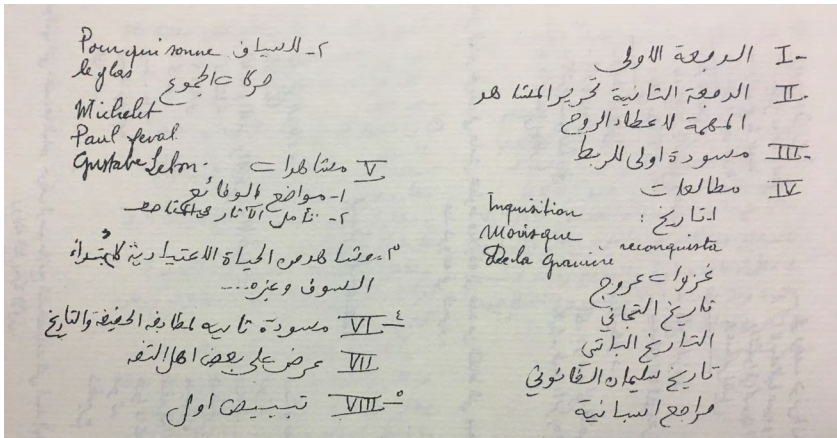 I- الدمعة الاولى
II- الدمعة الثانية تحرير المشاهد
المهمة لاعطاء الروح
III- مسودة اولى للربط
IV مطالعات
١- تاريخ :
Inquisition
Morisque
reconquista
De la Gravière
غزوات عروج
تاريخ التجاني
التاريخ الباشي
تاريخ سليمان القانوني
مراجع اسبانية
٢- للسياق
Pour qui sonne
le glas
حركات الجموع
Michelet
Paul Feval
Gustave Lebon.
V مشاهدات
١- مواضع الوقائع
٢- تأمل الآثار في المتاحف
٣- مشاهد من الحياة الاعتيادية
السوق وغيره....
٤- VI مسودة ثانية لمطابقة الحقيقة والتاريخ
VII عرض على بعض اهل الثقة
٥- VIII تبييض اول